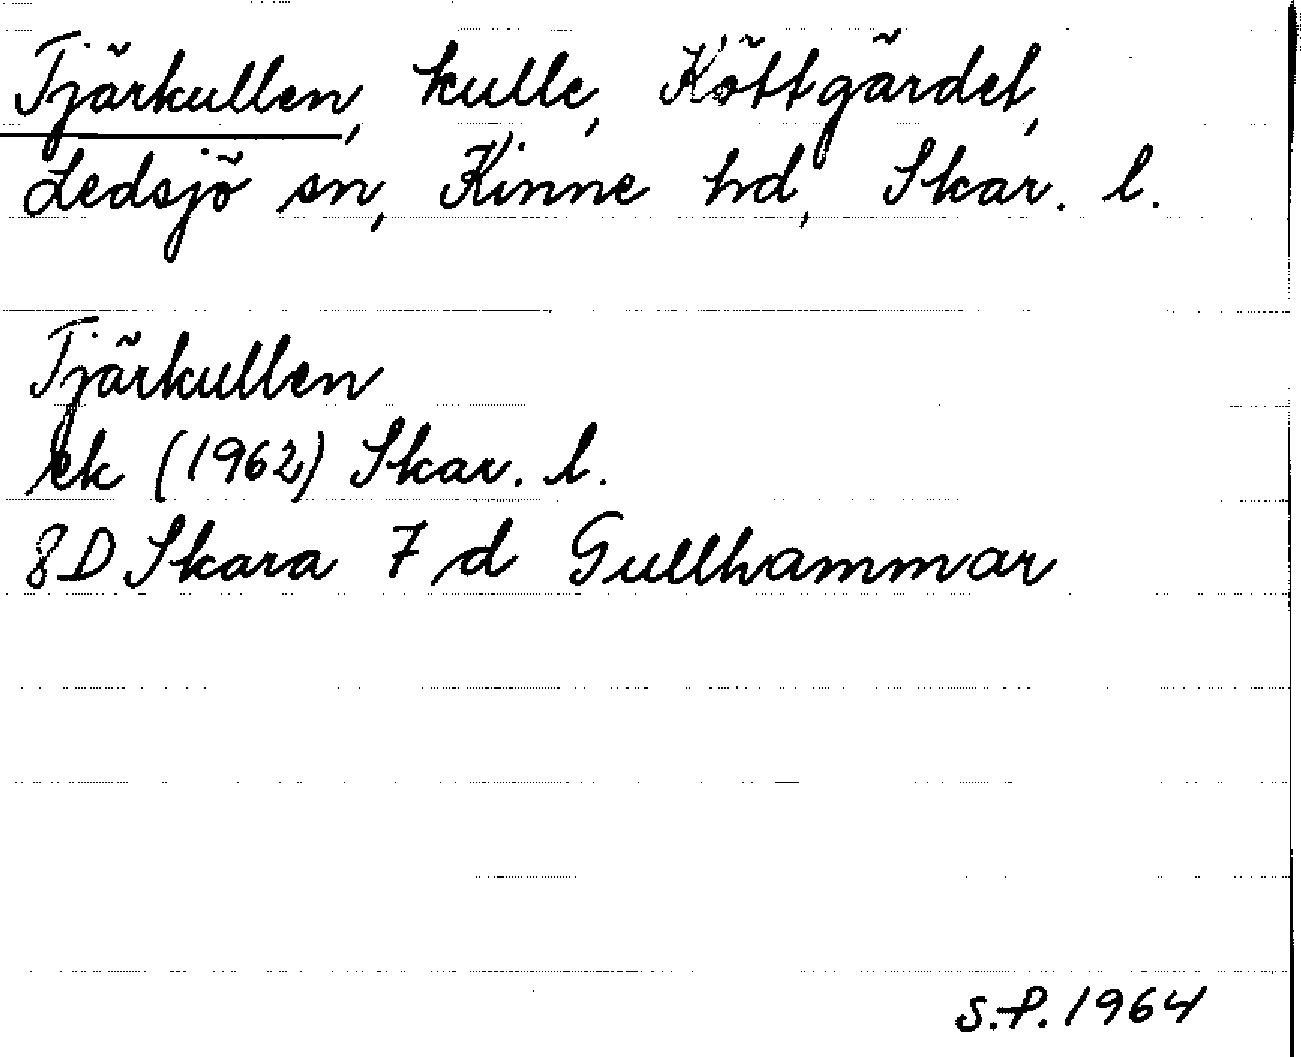 Tjärkullen, kulle, Köttgärdet,
Ledsjö sn, Kinne hd, Skar. l.
Tjärkullen
ek (1962) Skar. l.
8D Skara 7 d Gullhammar
S.P. 1964